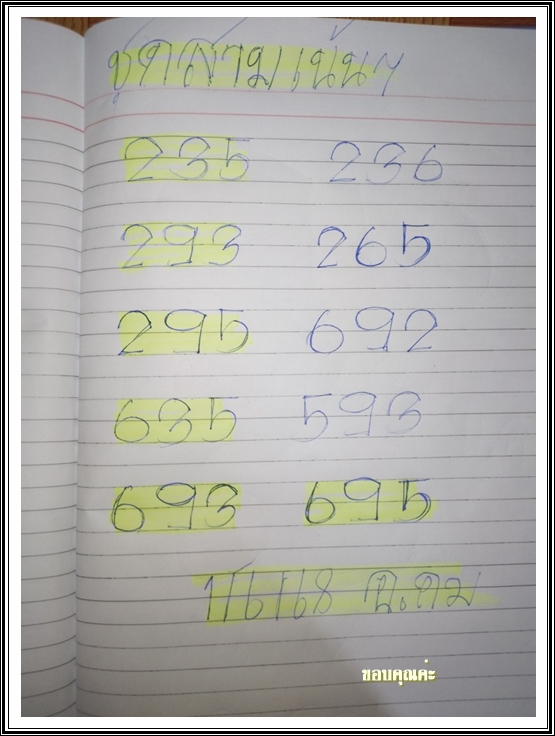 ชุดสามเน้นๆ
235 236
293 265
295 692
635 593
693 695
ต.คม
ขอบคุณค่ะ